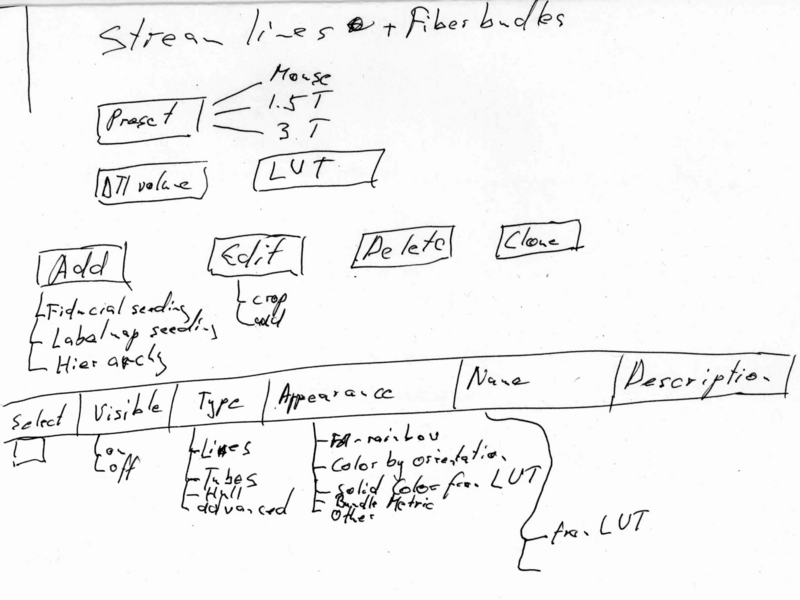 Stream lines + Fiber budles
Mouse
Preset 1.5 T
3 T
DTI volume LUT
Add Edit Delete Clone
Fiducial seeding crop
Labelmap seeding add
Hierarchy
Select Visible Type Appearance Name Description
on Lines FA-rainbow
off Tubes Color by orientation
Hull Solid Color from LUT
advanced Bundle Metric
Other
from LUT